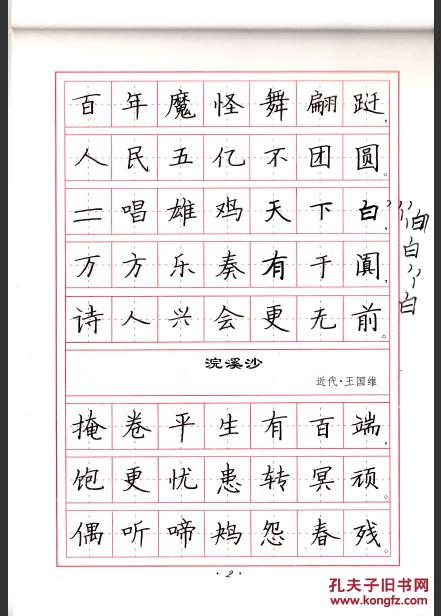 百年魔怪舞翩跹，
人民五亿不团圆。
一唱雄鸡天下白，
万方乐奏有于阗，
诗人兴会更无前。
浣溪沙
近代·王国维
掩卷平生有百端，
饱更忧患转冥顽。
偶听啼鴂怨春残
·2·
白
白
白
孔夫子旧书网
www.kongfz.com